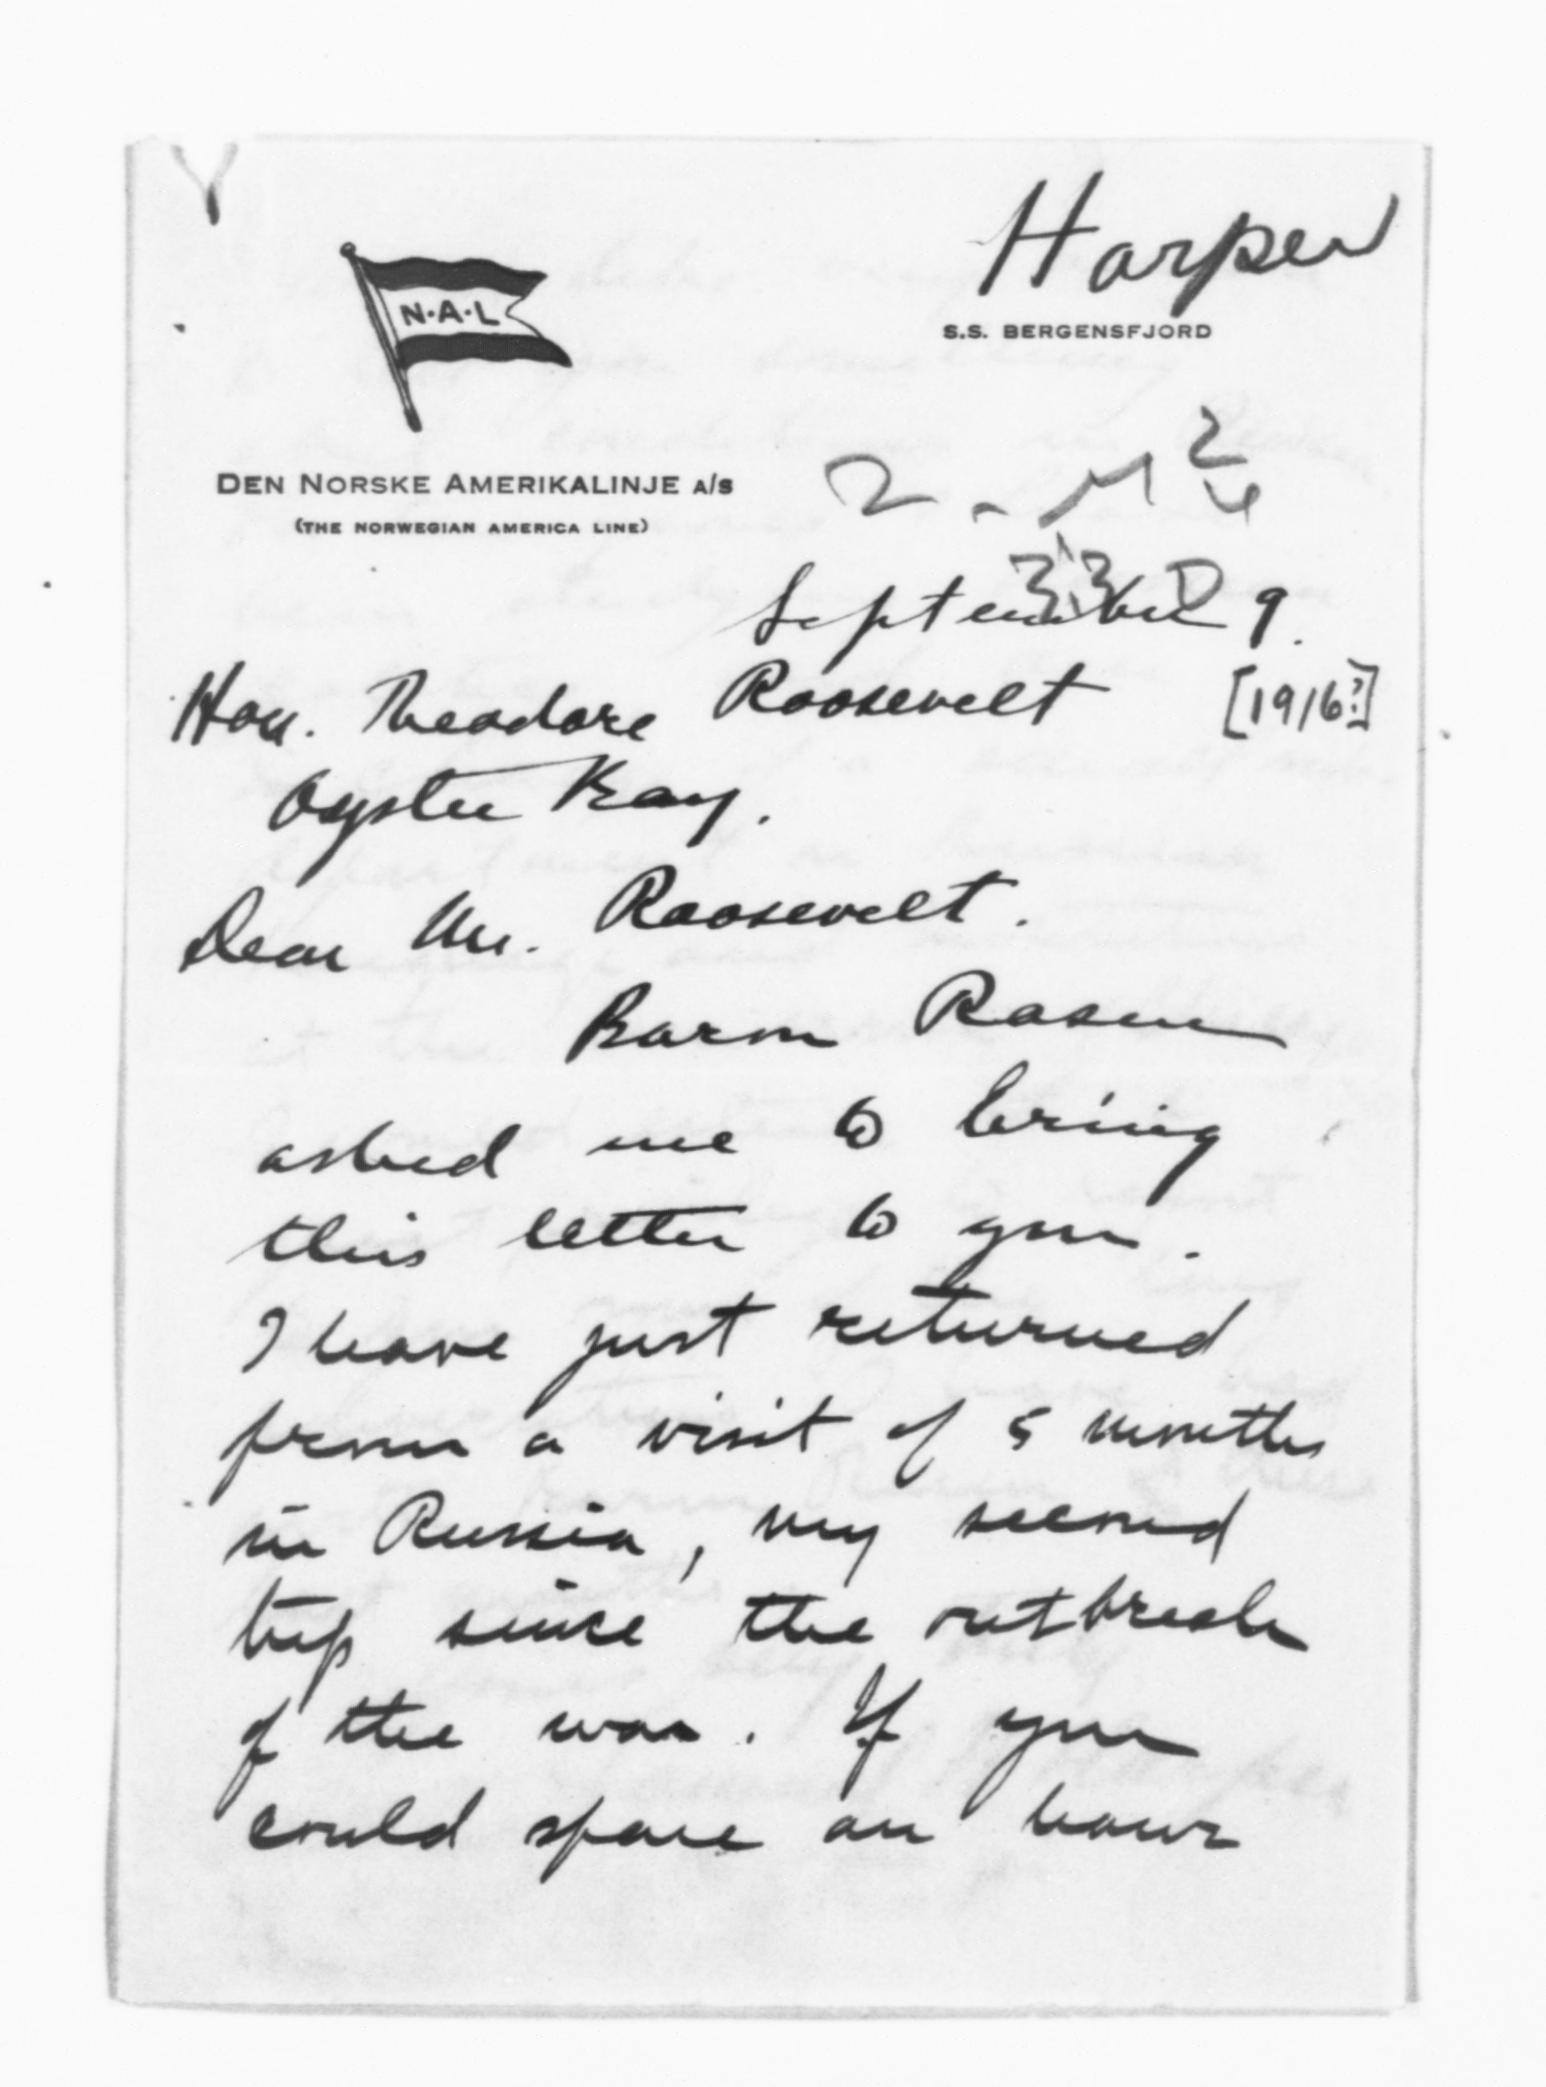 Harper
N·A·L
S.S. BERGENSFJORD
DEN NORSKE AMERIKALINJE A/S
(THE NORWEGIAN AMERICA LINE)
September 9.
Hon. Theodore Roosevelt [1916?]
Oyster Bay.
Dear Mr. Roosevelt.
Baron Rosen
asked me to bring
this letter to you.
I have just returned
from a visit of 5 months
in Russia, my second
trip since the outbreak
of the war. If you
could spare an hour